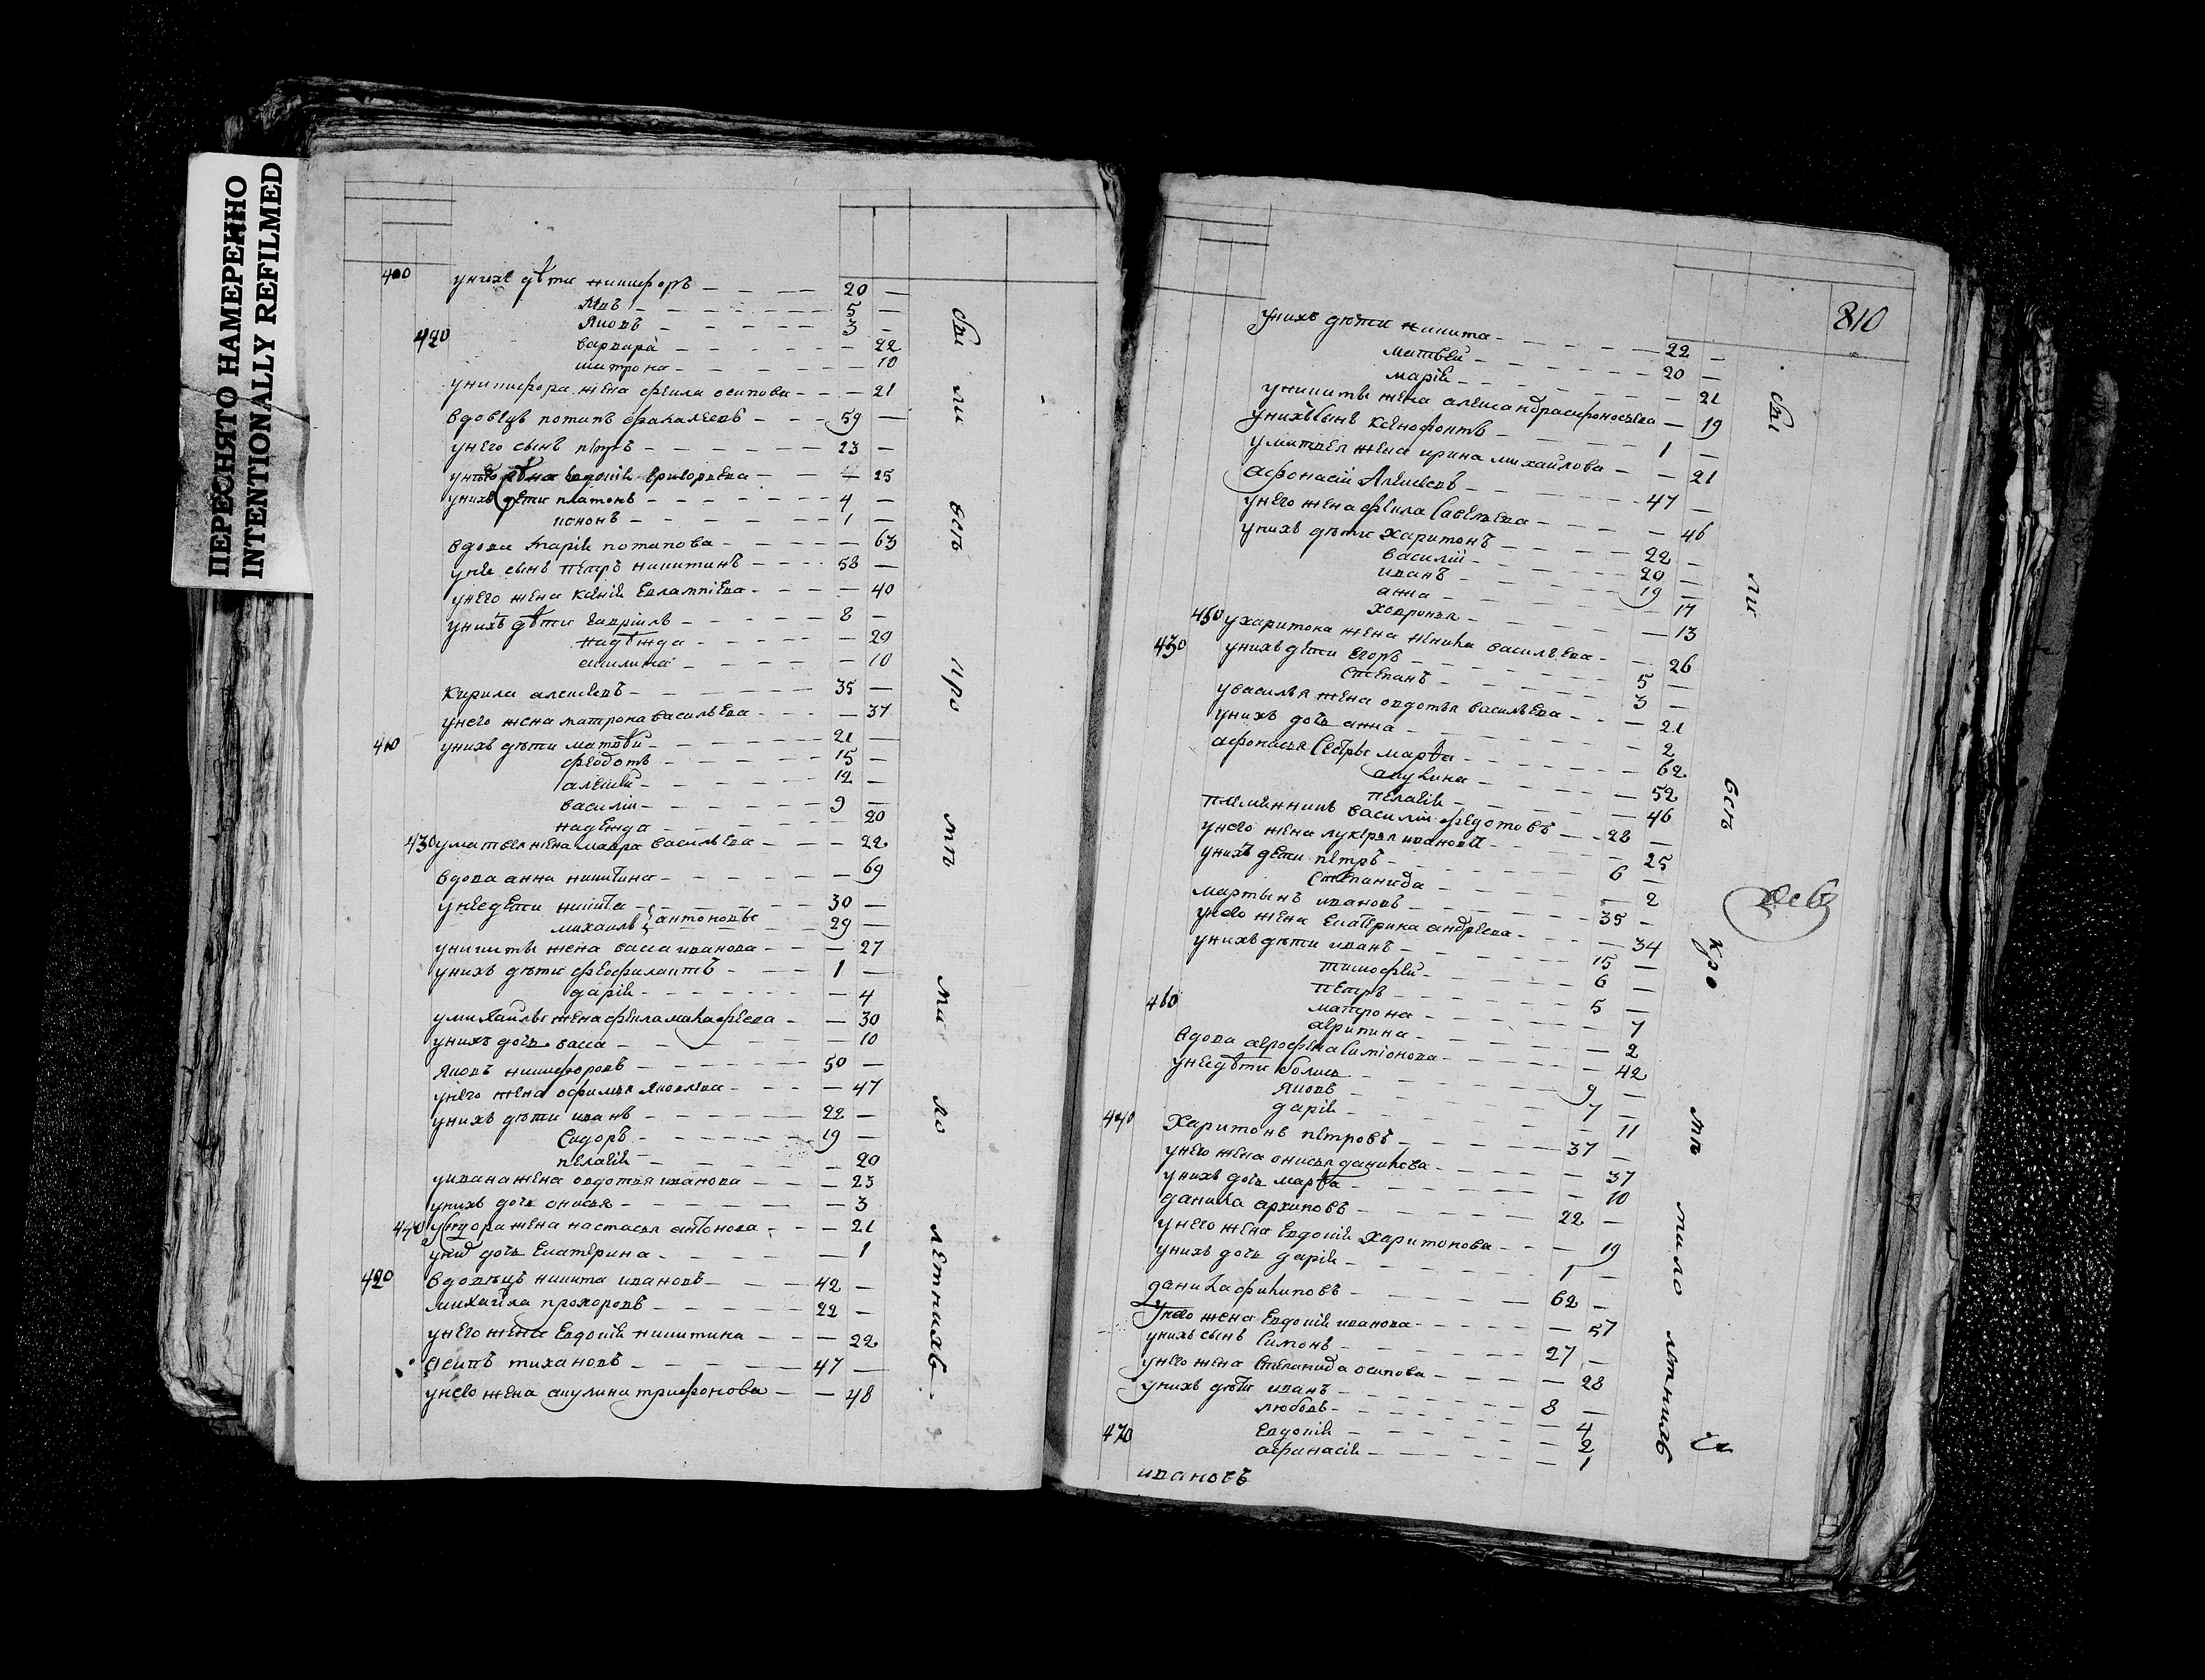 ПЕРЕСНЯТО НАМЕРЕННО
INTENTIONALLY REFILMED
400 унихъ дѣти никифоръ — 20 —
— 5 —
Яковъ — 3 —
420 варвара — — 22
матрона — — 10
уникифора жена фекла осипова — — 21
вдовецъ потапъ — 59 —
унего сынъ петръ — 23 —
евдокія григорьева — — 25
унихъ дети платонъ — 4 —
1 —
вдова марія потапова — — 63
унее сынъ петръ никитинъ — 58 —
унего жена ксенія евлампіева — — 40
унихъ дѣти гавріилъ — 8 —
надѣжда — — 20
акилина — — 10
кирила алексеевъ — 35 —
унего жена матрона васильева — — 37
410 унихъ дѣти матвѣй — 21 —
феодотъ — 15 —
алексей — 12 —
василій — 9 —
надежда — — 20
430 уматвея жена мавра васильева — — 22
вдова анна никитина — — 69
унее дети никита — 30 —
михаилъ } антоновы — 29 —
уникиты жена васса иванова — — 27
унихъ дѣти феофилактъ — 1 —
дарія — — 4
умихайлы жена фекла — — 30
унихъ дочь васса — — 10
Яковъ никифоровъ — 50 —
унего жена офимья Яковлева — — 47
унихъ дѣти иванъ — 22 —
Сидоръ — 19 —
пелагея — — 20
уивана жена овдотья иванова — — 23
унихъ дочь онисья — — 3
440 уСидора жена настасья антонова — — 21
дочь екатерина — — 1
420 вдовецъ никита ивановъ — 42 —
михайла прохоровъ — 22 —
унего жена евдокія никитина — — 22
осипъ тихановъ — 47 —
унего жена акулина трифонова — — 48
сіи
ли
всѣ
про
ти
ло
летнихъ
810
унихъ дѣти никита — 22 —
матвей — 20 —
марія — — 21
уникиты жена александра — — 19
унихъ сынъ ксенофонтъ — 1 —
уматвея жена ирина михайлова — — 21
афонасій Алексеевъ — 47 —
унего жена фекла Савельева — — 46
унихъ дѣти харитонъ — 22 —
василій — 20 —
иванъ — 19 —
анна — — 17
ховронья — — 13
450 ухаритона жена васильева — — 26
430 унихъ дѣти егоръ — 5 —
степанъ — 3 —
увасилья жена овдотья васильева — — 21
унихъ дочь анна — — 2
афонасья Сестры марфа — — 62
акулина — — 52
пелагея — — 46
племянникъ василій федотовъ — 28 —
унего жена лукерья иванова — — 25
унихъ дети петръ — 6 —
степанида — — 2
мартынъ ивановъ — 35 —
унего жена екатерина андреева — — 34
унихъ дѣти иванъ — 15 —
тимофей — 6 —
петръ — 5 —
460 матрона — — 7
агрипина — — 2
вдова Симіонова — — 42
унее дѣти — 9 —
Яковъ — 7 —
дарія — — 11
440 Харитонъ петровъ — 37 —
унего жена онисья данилова — — 37
унихъ дочь марфа — — 10
данила архиповъ — 22 —
унего жена евдокія харитонова — — 19
унихъ дочь дарія — 1 —
данила филиповъ — 62 —
унего жена евдокія иванова — — 57
унихъ сынъ Симонъ — 27 —
унего жена степанида осипова — — 28
унихъ дѣти иванъ — 8 —
любовь — — 4
470 евдокія — — 2
афанасія — — 1
ивановъ
сіи
ли
всѣ
кро
мѣ
мало
лѣтнихъ